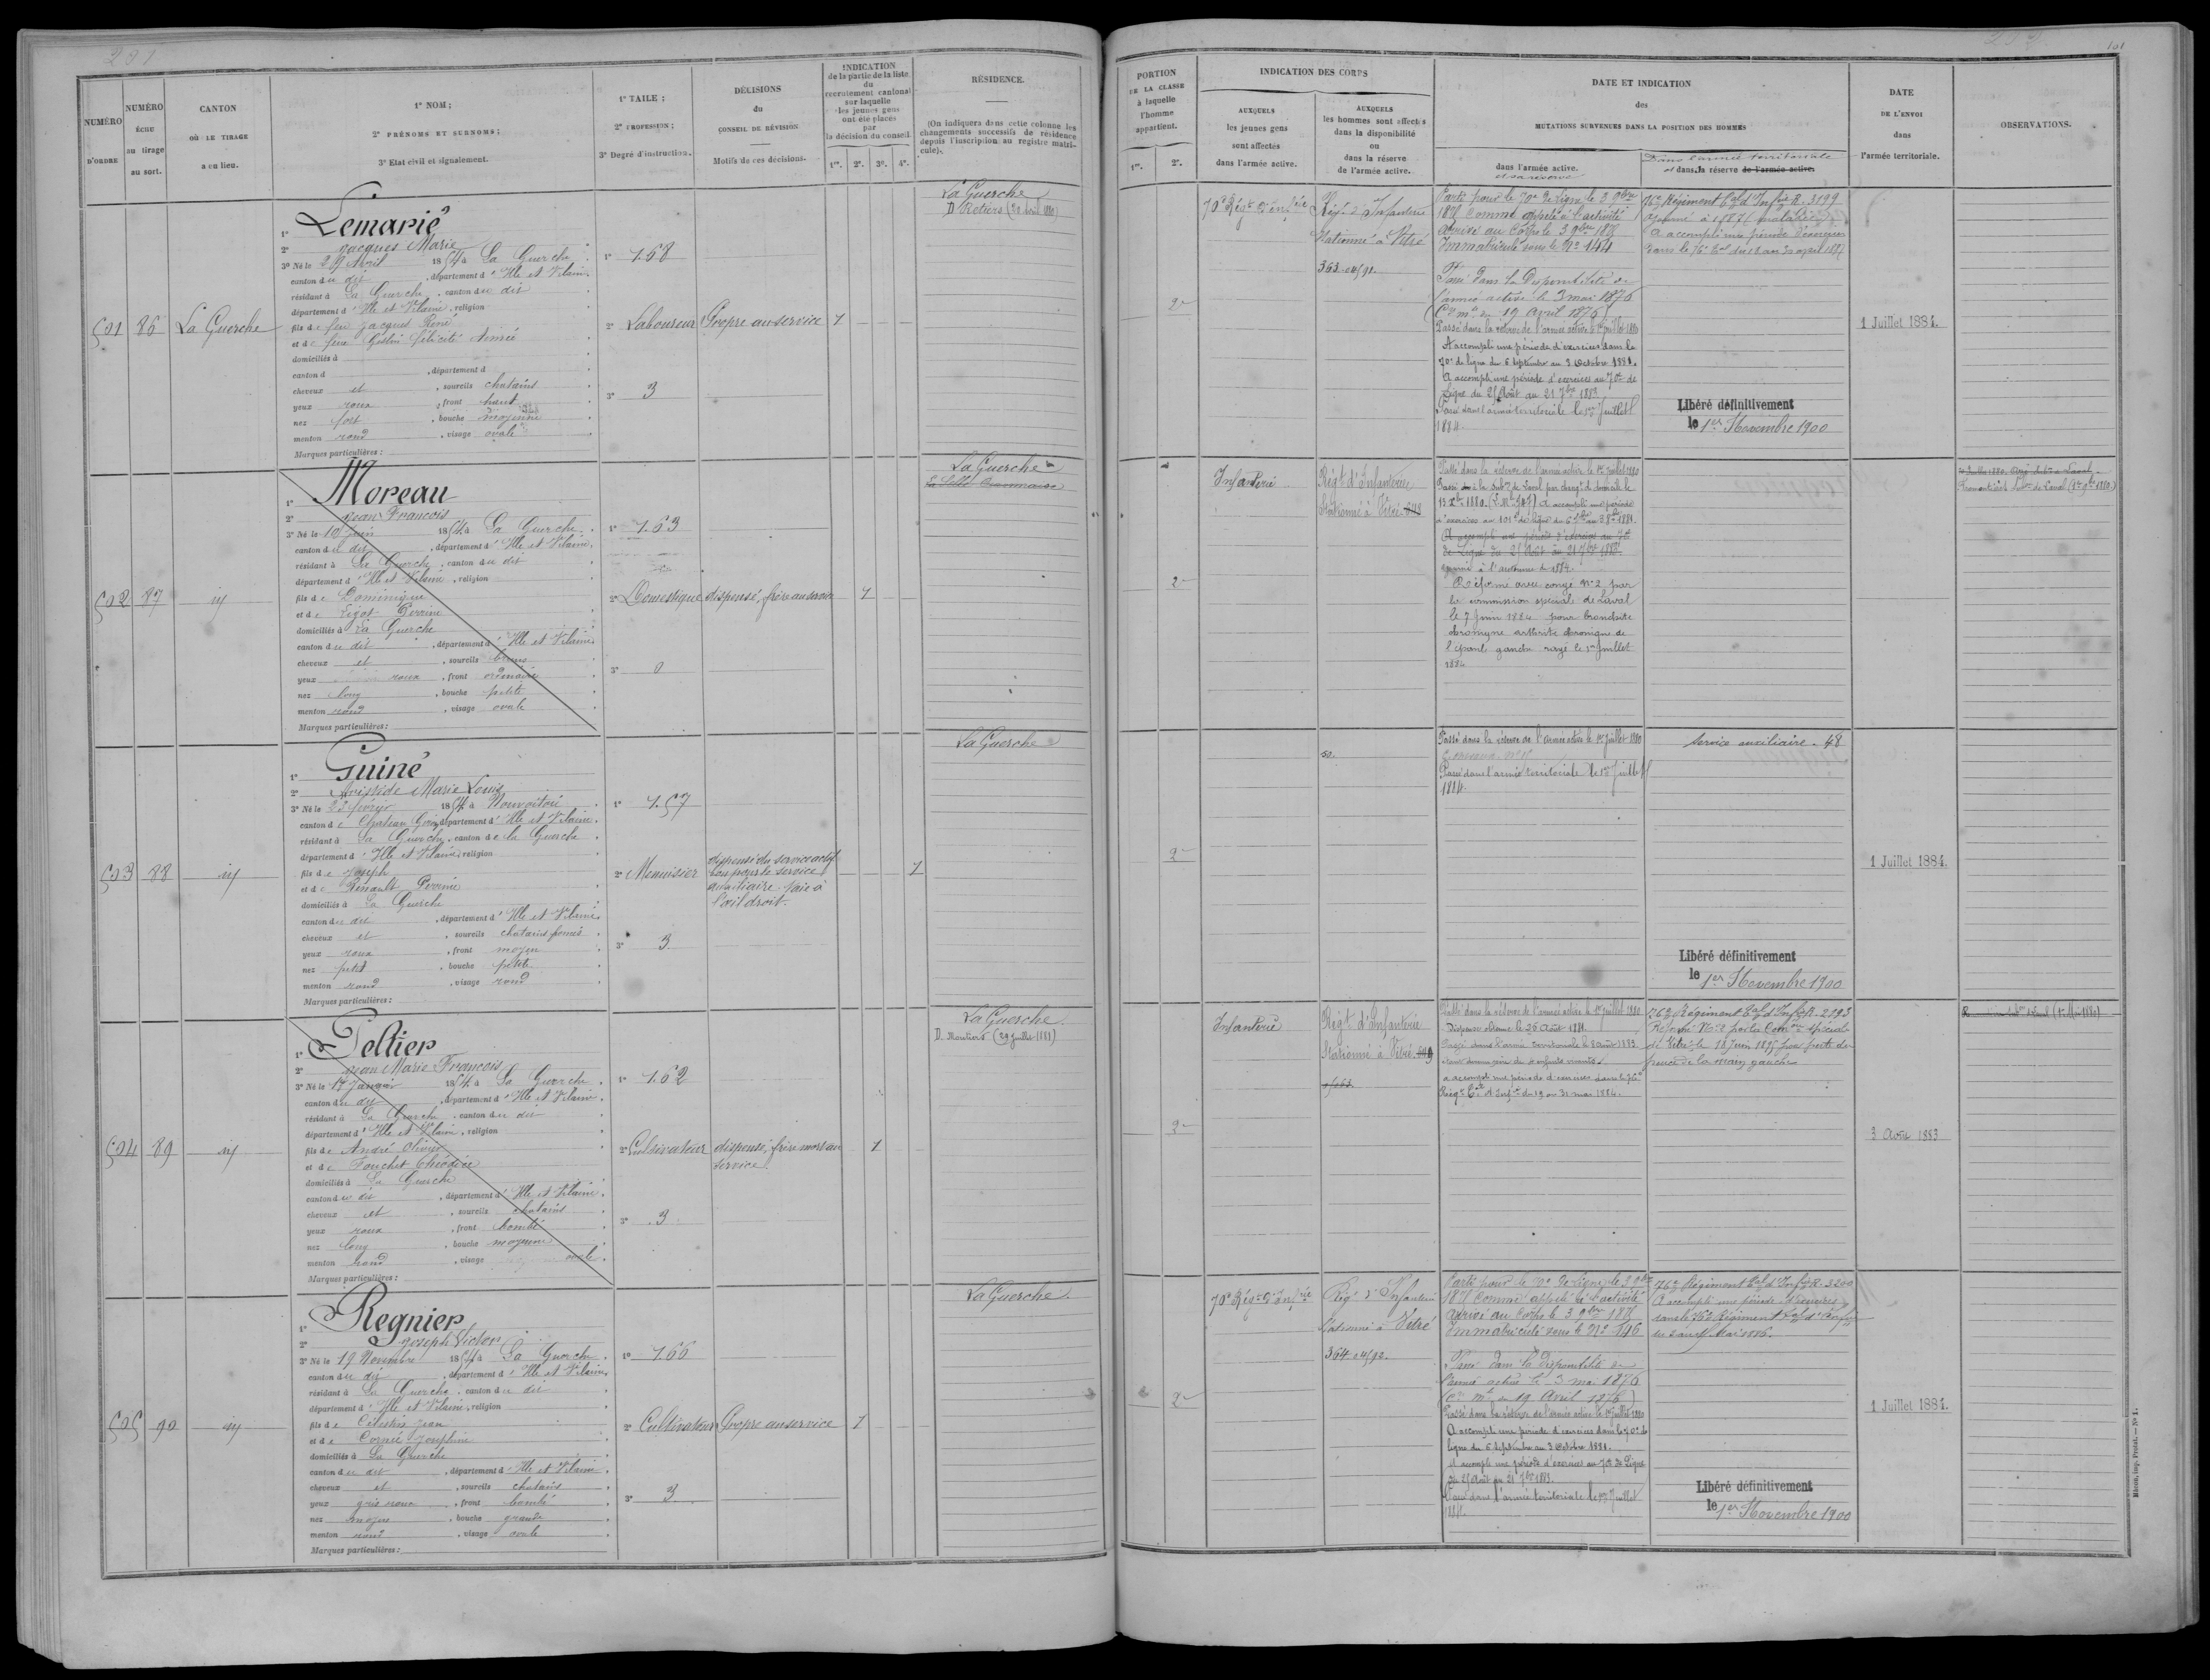 NUMÉRO
D'ORDRE
NUMÉRO
ÉCHU
au tirage
au sort.
CANTON
OÙ LE TIRAGE
a eu lieu.
1° NOM ;
2° PRÉNOMS ET SURNOMS ;
3° Etat civil et signalement.
1° TAILE ;
2° PROFESSION ;
3° Degré d'instruction.
DÉCISIONS
du
CONSEIL DE RÉVISION
Motifs de ces décisions.
INDICATION
de la partie de la liste
du
recrutement cantonal
sur laquelle
les jeunes gens
ont été placés
par
la décision du conseil.
1re. 2e. 3e. 4e.
RÉSIDENCE.
(On indiquera dans cette colonne les
changements successifs de résidence
depuis l'inscription au registre matri-
cule).
501
86
La Guerche
1° Lemarié
2° Jacques Marie
3° Né le 29 Avril 1854 à La Guerche
canton du dit, département d'Ille et Vilaine
résidant à La Guerche, canton du dit
département d'Ille et Vilaine, religion
fils de feu Jacques René
et de feue Félicité Aimée
domiciliés à
canton d , département d
cheveux et , sourcils chatains
yeux roux , front haut
nez fort , bouche moyenne
menton rond , visage ovale
Marques particulières :
1° 1.68
2° Laboureur
3° 3
Propre au service
1
La Guerche
D. Retiers (20 Avril 1880)
502
87
1° Moreau
2° Jean François
3° Né le 10 Juin 1854 à La Guerche
canton du dit, département d'Ille et Vilaine
résidant à La Guerche, canton du dit
département d'Ille et Vilaine, religion
fils de Dominique
et de Perrine
domiciliés à La Guerche
canton du dit , département d'Ille et Vilaine
cheveux et , sourcils bruns
yeux roux , front ordinaire
nez long , bouche petite
menton rond , visage ovale
Marques particulières :
1° 1.63
2° Domestique
3° 0
dispensé, frère au service
1
La Guerche
La Selle Craonnaise
503
88
1° Guiné
2° Aristide Marie Louis
3° Né le 23 février 1854 à Nouvoitou
canton de Chateau Giron, département d'Ille et Vilaine
résidant à La Guerche, canton de la Guerche
département d'Ille et Vilaine, religion
fils de Joseph
et de Renault Perrine
domiciliés à La Guerche
canton du dit , département d'Ille et Vilaine
cheveux et , sourcils chatains foncés
yeux roux , front moyen
nez petit , bouche petite
menton rond , visage rond
Marques particulières :
1° 1.57
2° Menuisier
3° 3
dispensé du service actif
bon pour le service
auxiliaire. taie à
l'œil droit.
1
La Guerche
504
89
1° Peltier
2° Jean Marie François
3° Né le 17 Janvier 1854 à La Guerche
canton du dit, département d'Ille et Vilaine
résidant à La Guerche, canton du dit
département d'Ille et Vilaine, religion
fils de André Olivier
et de Fouchet
domiciliés à La Guerche
canton du dit , département d'Ille et Vilaine
cheveux et , sourcils chatains
yeux roux , front bombé
nez long , bouche moyenne
menton rond , visage ovale
Marques particulières :
1° 1.62
2° Cultivateur
3° 3
dispensé, frère mort au
service
1
La Guerche
D. Moutiers (29 Juillet 1881)
505
90
1° Regnier
2° Joseph Victor
3° Né le 19 Novembre 1854 à La Guerche
canton du dit, département d'Ille et Vilaine
résidant à La Guerche, canton du dit
département d'Ille et Vilaine, religion
fils de Célestin Jean
et de Cornée Joséphine
domiciliés à La Guerche
canton du dit , département d'Ille et Vilaine
cheveux et , sourcils chatains
yeux gris roux , front bombé
nez moyen , bouche grande
menton rond , visage ovale
Marques particulières :
1° 1.66
2° Cultivateur
3° 3
Propre au service
1
La Guerche
PORTION
DE LA CLASSE
à laquelle
l'homme
appartient.
1re. 2e.
INDICATION DES CORPS
AUXQUELS
les jeunes gens
sont affectés
dans l'armée active.
AUXQUELS
les hommes sont affectés
dans la disponibilité
ou
dans la réserve
de l'armée active.
DATE ET INDICATION
des
MUTATIONS SURVENUES DANS LA POSITION DES HOMMES
dans l'armée active.
et sa réserve
Dans l'armée territoriale
et dans sa réserve de l'armée active.
DATE
DE L'ENVOI
dans
l'armée territoriale.
OBSERVATIONS.
2e
70e Régt d'Infrie
Régt d'Infanterie
Stationné à Vitré
Parti pour le 70e de ligne le 3 9bre
1875 comme appelé à l'activité
Arrivé au Corps le 3 9bre 1875
Immatriculé sous le No 144
Passé dans la Disponibilité de
l'armée active le 3 mai 1876
(Cre mle du 19 Avril 1876)
Passé dans la réserve de l'armée active le 1er Juillet 1880
A accompli une période d'exercices dans le
70e de ligne du 6 Septembre au 3 Octobre 1881.
A accompli une période d'exercices au 70e de
Ligne du 25 Août au 21 7bre 1883
Passé dans l'armée territoriale le 1er Juillet
1884.
76e Régiment tal d'Infrie R. 3199
Ajourné à 1887 (malade)
A accompli une période d'exercices
dans le 76e tal du 18 au 30 avril 1887
Libéré définitivement
le 1er Novembre 1900
1 Juillet 1884.
2e
Infanterie
Régt d'Infanterie
Stationné à Vitré
Passé dans la réserve de l'armée active le 1er Juillet 1880
à la Subon de Laval par changt de domicile le
A accompli une période
d'exercices au 101e de ligne du 6 7bre au 3 8bre 1881.
A accompli une période d'exercices au 70e
de Ligne du 25 Août au 21 7bre 1883
ajourné à l'automne de 1884.
Réformé avec congé No 2 par
la commission spéciale de Laval
le 7 Juin 1884 pour bronchite
chronique arthrite chronique de
l'épaule gauche rayé le 1er Juillet
1884
2e
Passé dans la réserve de l'armée active le 1er Juillet 1880
Passé dans l'armée territoriale le 1er Juillet
1884.
Service auxiliaire. 48
Libéré définitivement
le 1er Novembre 1900
1 Juillet 1884.
2e
Infanterie
Régt d'Infanterie
Stationné à Vitré
Passé dans la réserve de l'armée active le 1er Juillet 1880
Dispense obtenue le 26 Août 1881.
Passé dans l'armée territoriale le 3 Août 1883
étant devenu père de 4 enfants vivants.
a accompli une période d'exercices dans le 76e
Régt tal d'Infrie du 19 au 31 mai 1884.
76e Régiment tal d'Infrie R. 2193
Réformé No 2 par la Comon spéciale
de Vitré le 18 Juin 1895 pour perte du
pouce de la main gauche
3 Août 1883
2e
70e Régt d'Infrie
Régt d'Infanterie
Stationné à Vitré
Parti pour le 70e de ligne le 3 9bre
1875 comme appelé à l'activité
Arrivé au Corps le 3 9bre 1875
Immatriculé sous le No 146
Passé dans la Disponibilité de
l'armée active le 3 mai 1876
(Cre mle du 19 Avril 1876)
Passé dans la réserve de l'armée active le 1er Juillet 1880
A accompli une période d'exercices dans le 70e de
ligne du 6 Septembre au 3 Octobre 1881.
A accompli une période d'exercices au 70e de Ligne
du 25 Août au 21 7bre 1883.
Passé dans l'armée territoriale le 1er Juillet
1884.
76e Régiment tal d'Infrie R. 3200
A accompli une période d'exercices
dans le 76e Régiment tal d'Infrie
Mai 1886.
Libéré définitivement
le 1er Novembre 1900
1 Juillet 1884.